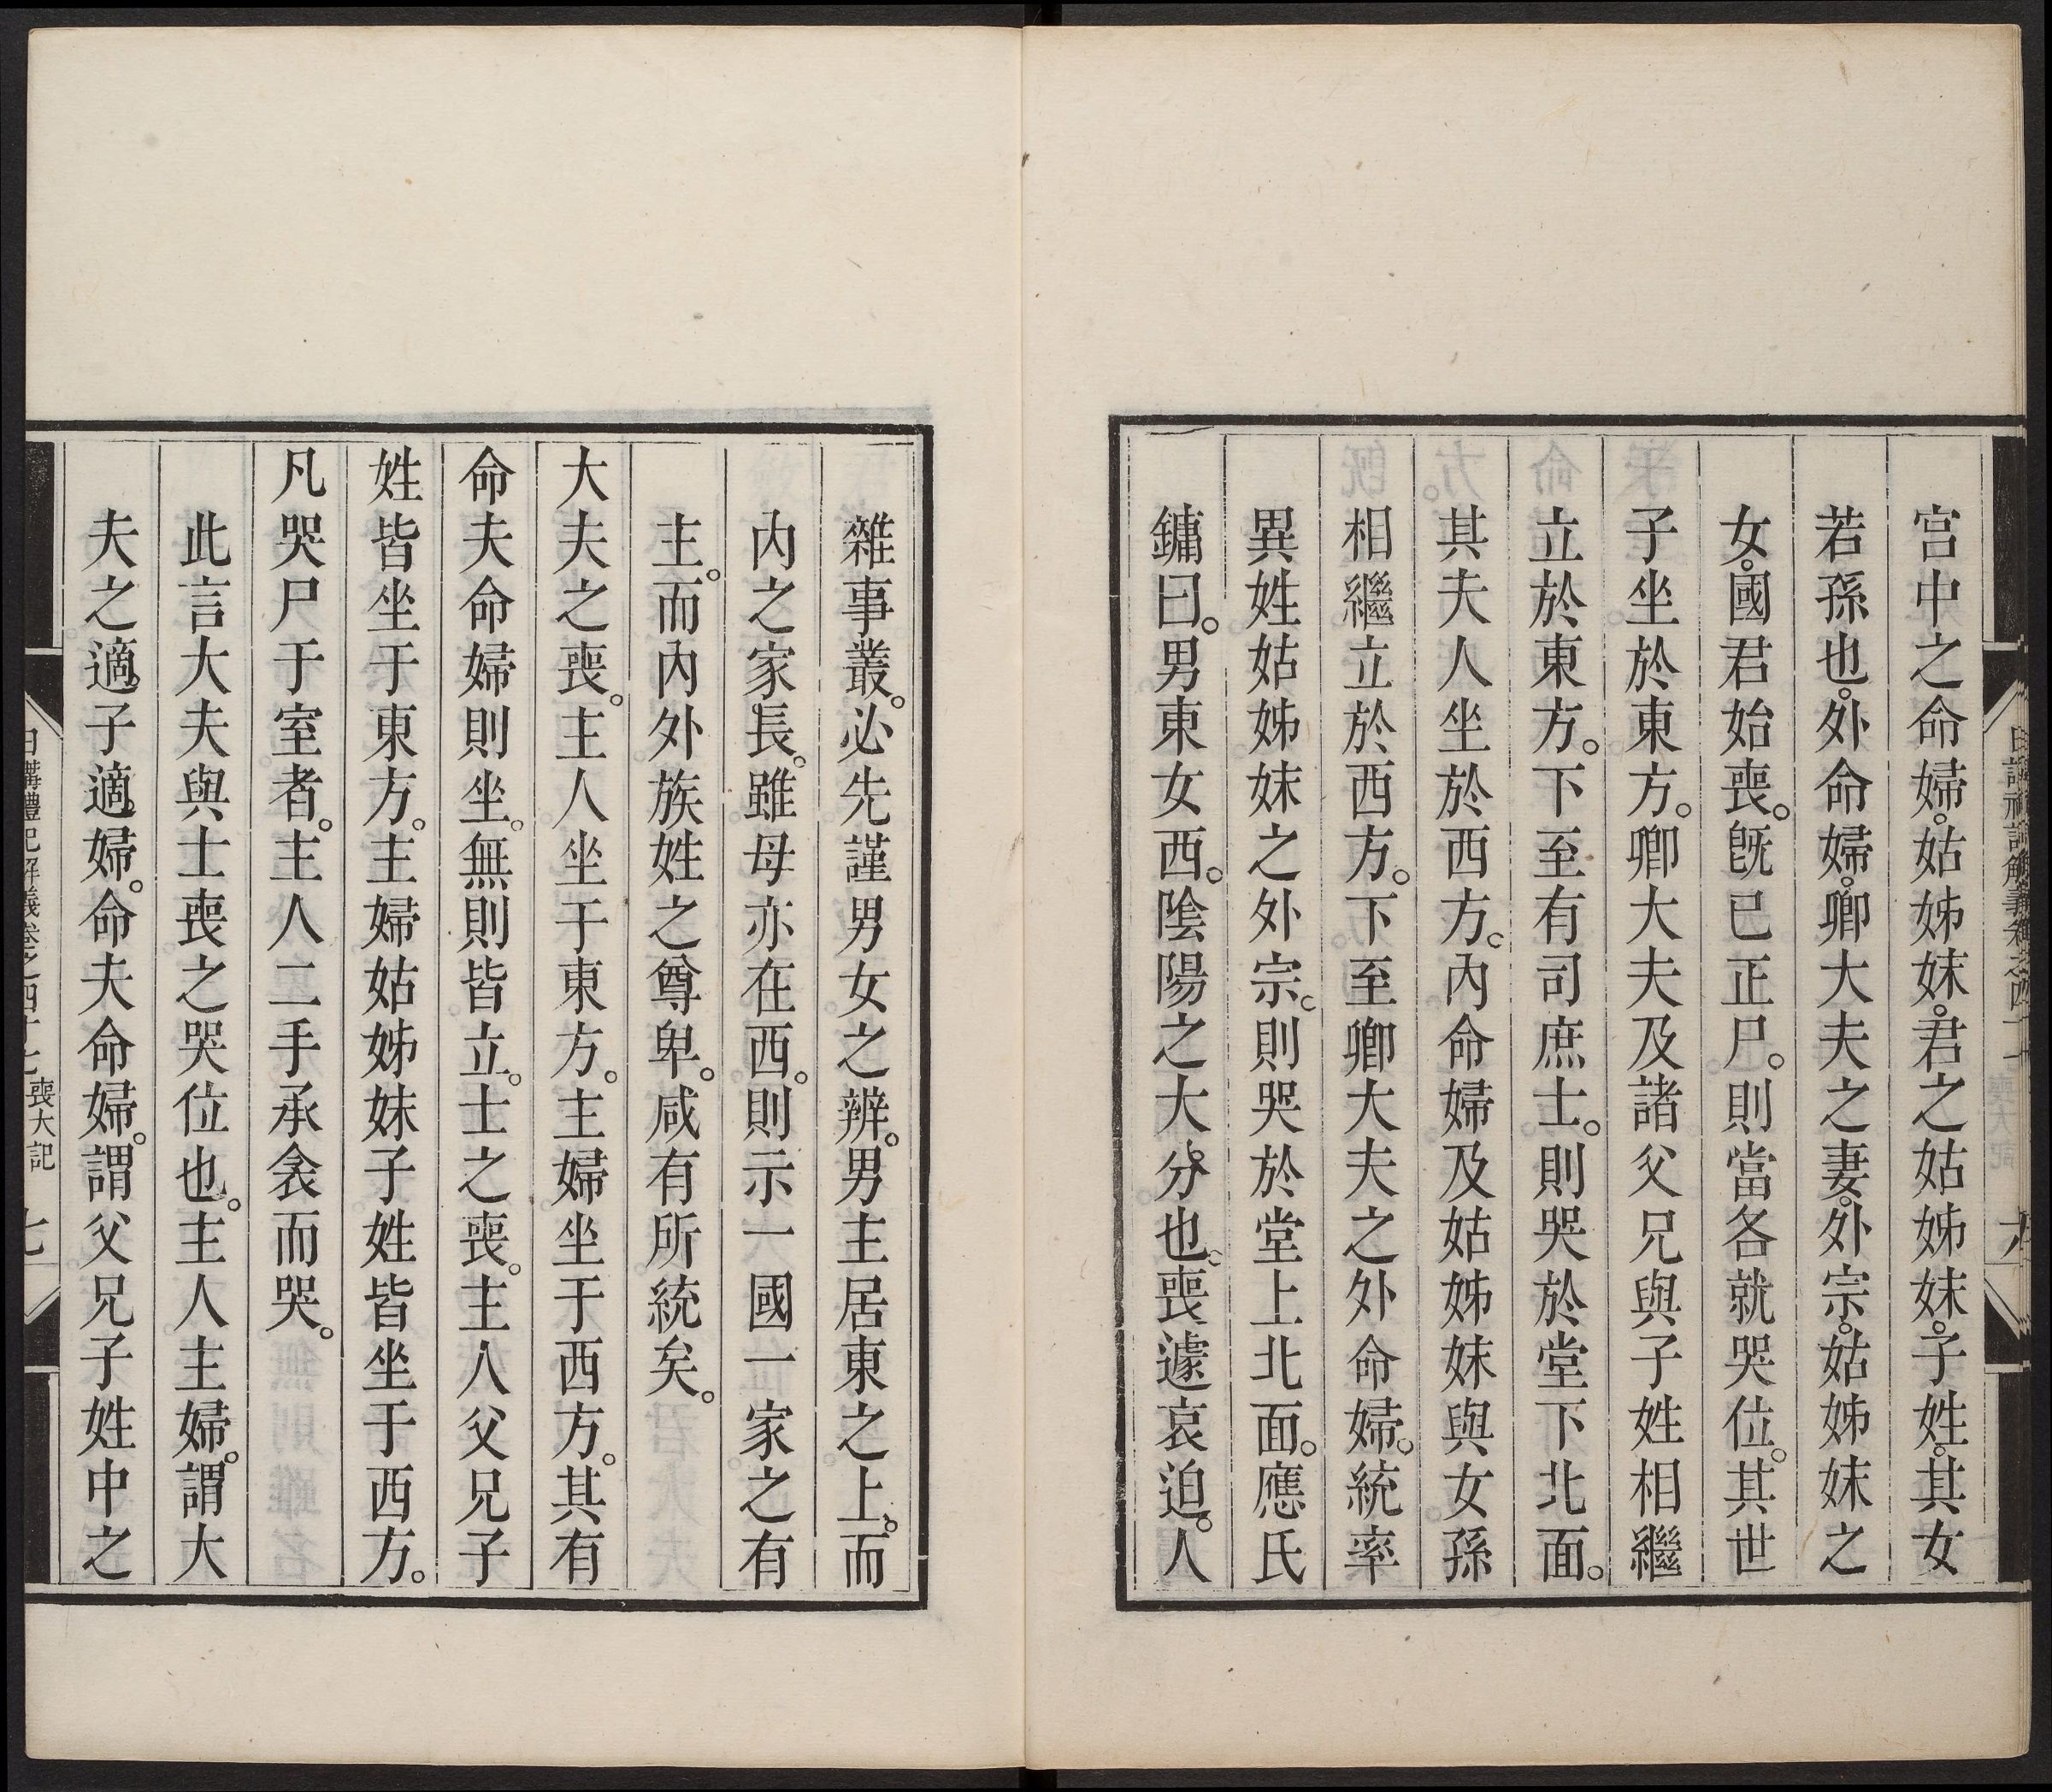 宫中之命婦。姑姊妹。君之姑姊妹。子姓。其女
若孫也。外命婦。卿大夫之妻。外宗。姑姊妹之
女。國君始喪。旣已正尸。則當各就哭位。其世
子坐於東方。卿大夫及諸父兄與子姓相繼
立於東方。下至有司庶士。則哭於堂下北面。
其夫人坐於西方。內命婦及姑姊妹與女孫
相繼立於西方。下至卿大夫之外命婦。統率
異姓姑姊妹之外宗。則哭於堂上北面。應氏
鏞曰。男東女西。陰陽之大分也。喪遽哀迫。人
雜事叢。必先謹男女之辨。男主居東之上。而
內之家長。雖母亦在西。則示一國一家之有
主。而內外族姓之尊卑。咸有所統矣。
大夫之喪。主人坐于東方。主婦坐于西方。其有
命夫命婦則坐。無則皆立。士之喪。主人父兄子
姓皆坐于東方。主婦姑姊妹子姓皆坐于西方。
凡哭尸于室者。主人二手承衾而哭。
此言大夫與士喪之哭位也。主人主婦。謂大
夫之適子適婦。命夫命婦。謂父兄子姓中之
日講禮記解義卷之四十七 喪大記 七